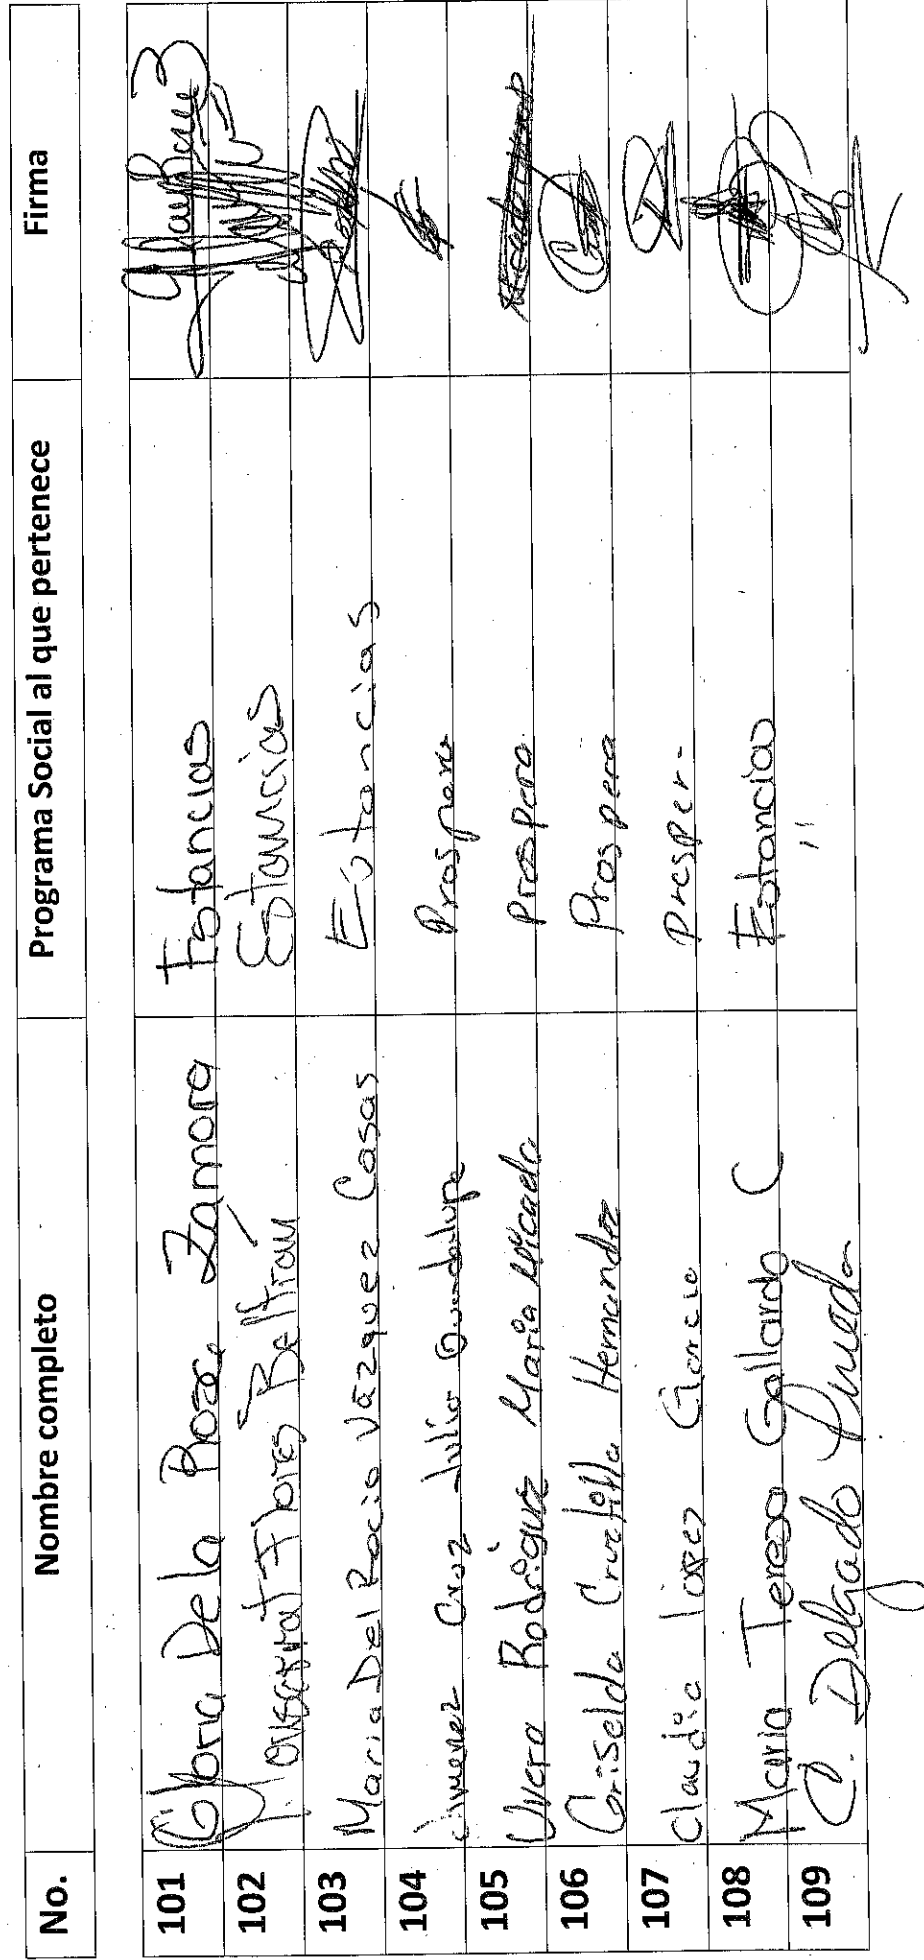 No. Nombre completo Programa Social al que pertenece Firma
101 Gloria De la Rosa Zamora Estancias
102 Monserrat Flores Beltrán Estancias
103 Maria Del Rocio Vázquez Casas Estancias
104 Jimenez Cruz Julia Guadalupe Prospera
105 Rodriguez Maria Mercado Prospera
106 Griselda Hernandez Prospera
107 Claudia López Garcia Prosper-
108 Maria Teresa Gallardo C Estancias
109 C. Delgado Pineda "